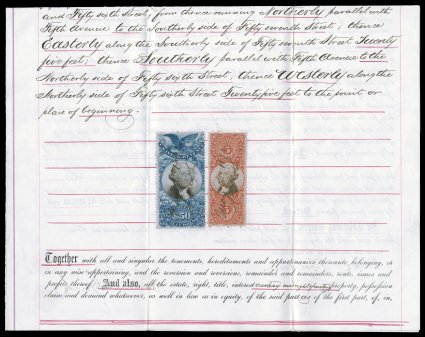 and Fifty sixth Street; from thence running Northerly parallel with
Fifth Avenue to the Southerly side of Fifty seventh Street; thence
Easterly along the Southerly side of Fifty seventh Street Twenty
five feet; thence Southerly parallel with Fifth Avenue to the
Northerly side of Fifty sixth Street; thence Westerly along the
Northerly side of Fifty sixth Street Twenty five feet to the point or
place of beginning.
$50
Together with all and singular the tenements, hereditaments and appurtenances thereunto belonging, or
in any wise appertaining, and the reversion and reversions, remainder and remainders, rents, issues and
profits thereof. And also, all the estate, right, title, interest property, possession
claim and demand whatsoever, as well in law as in equity, of the said part of the first part, of, in,